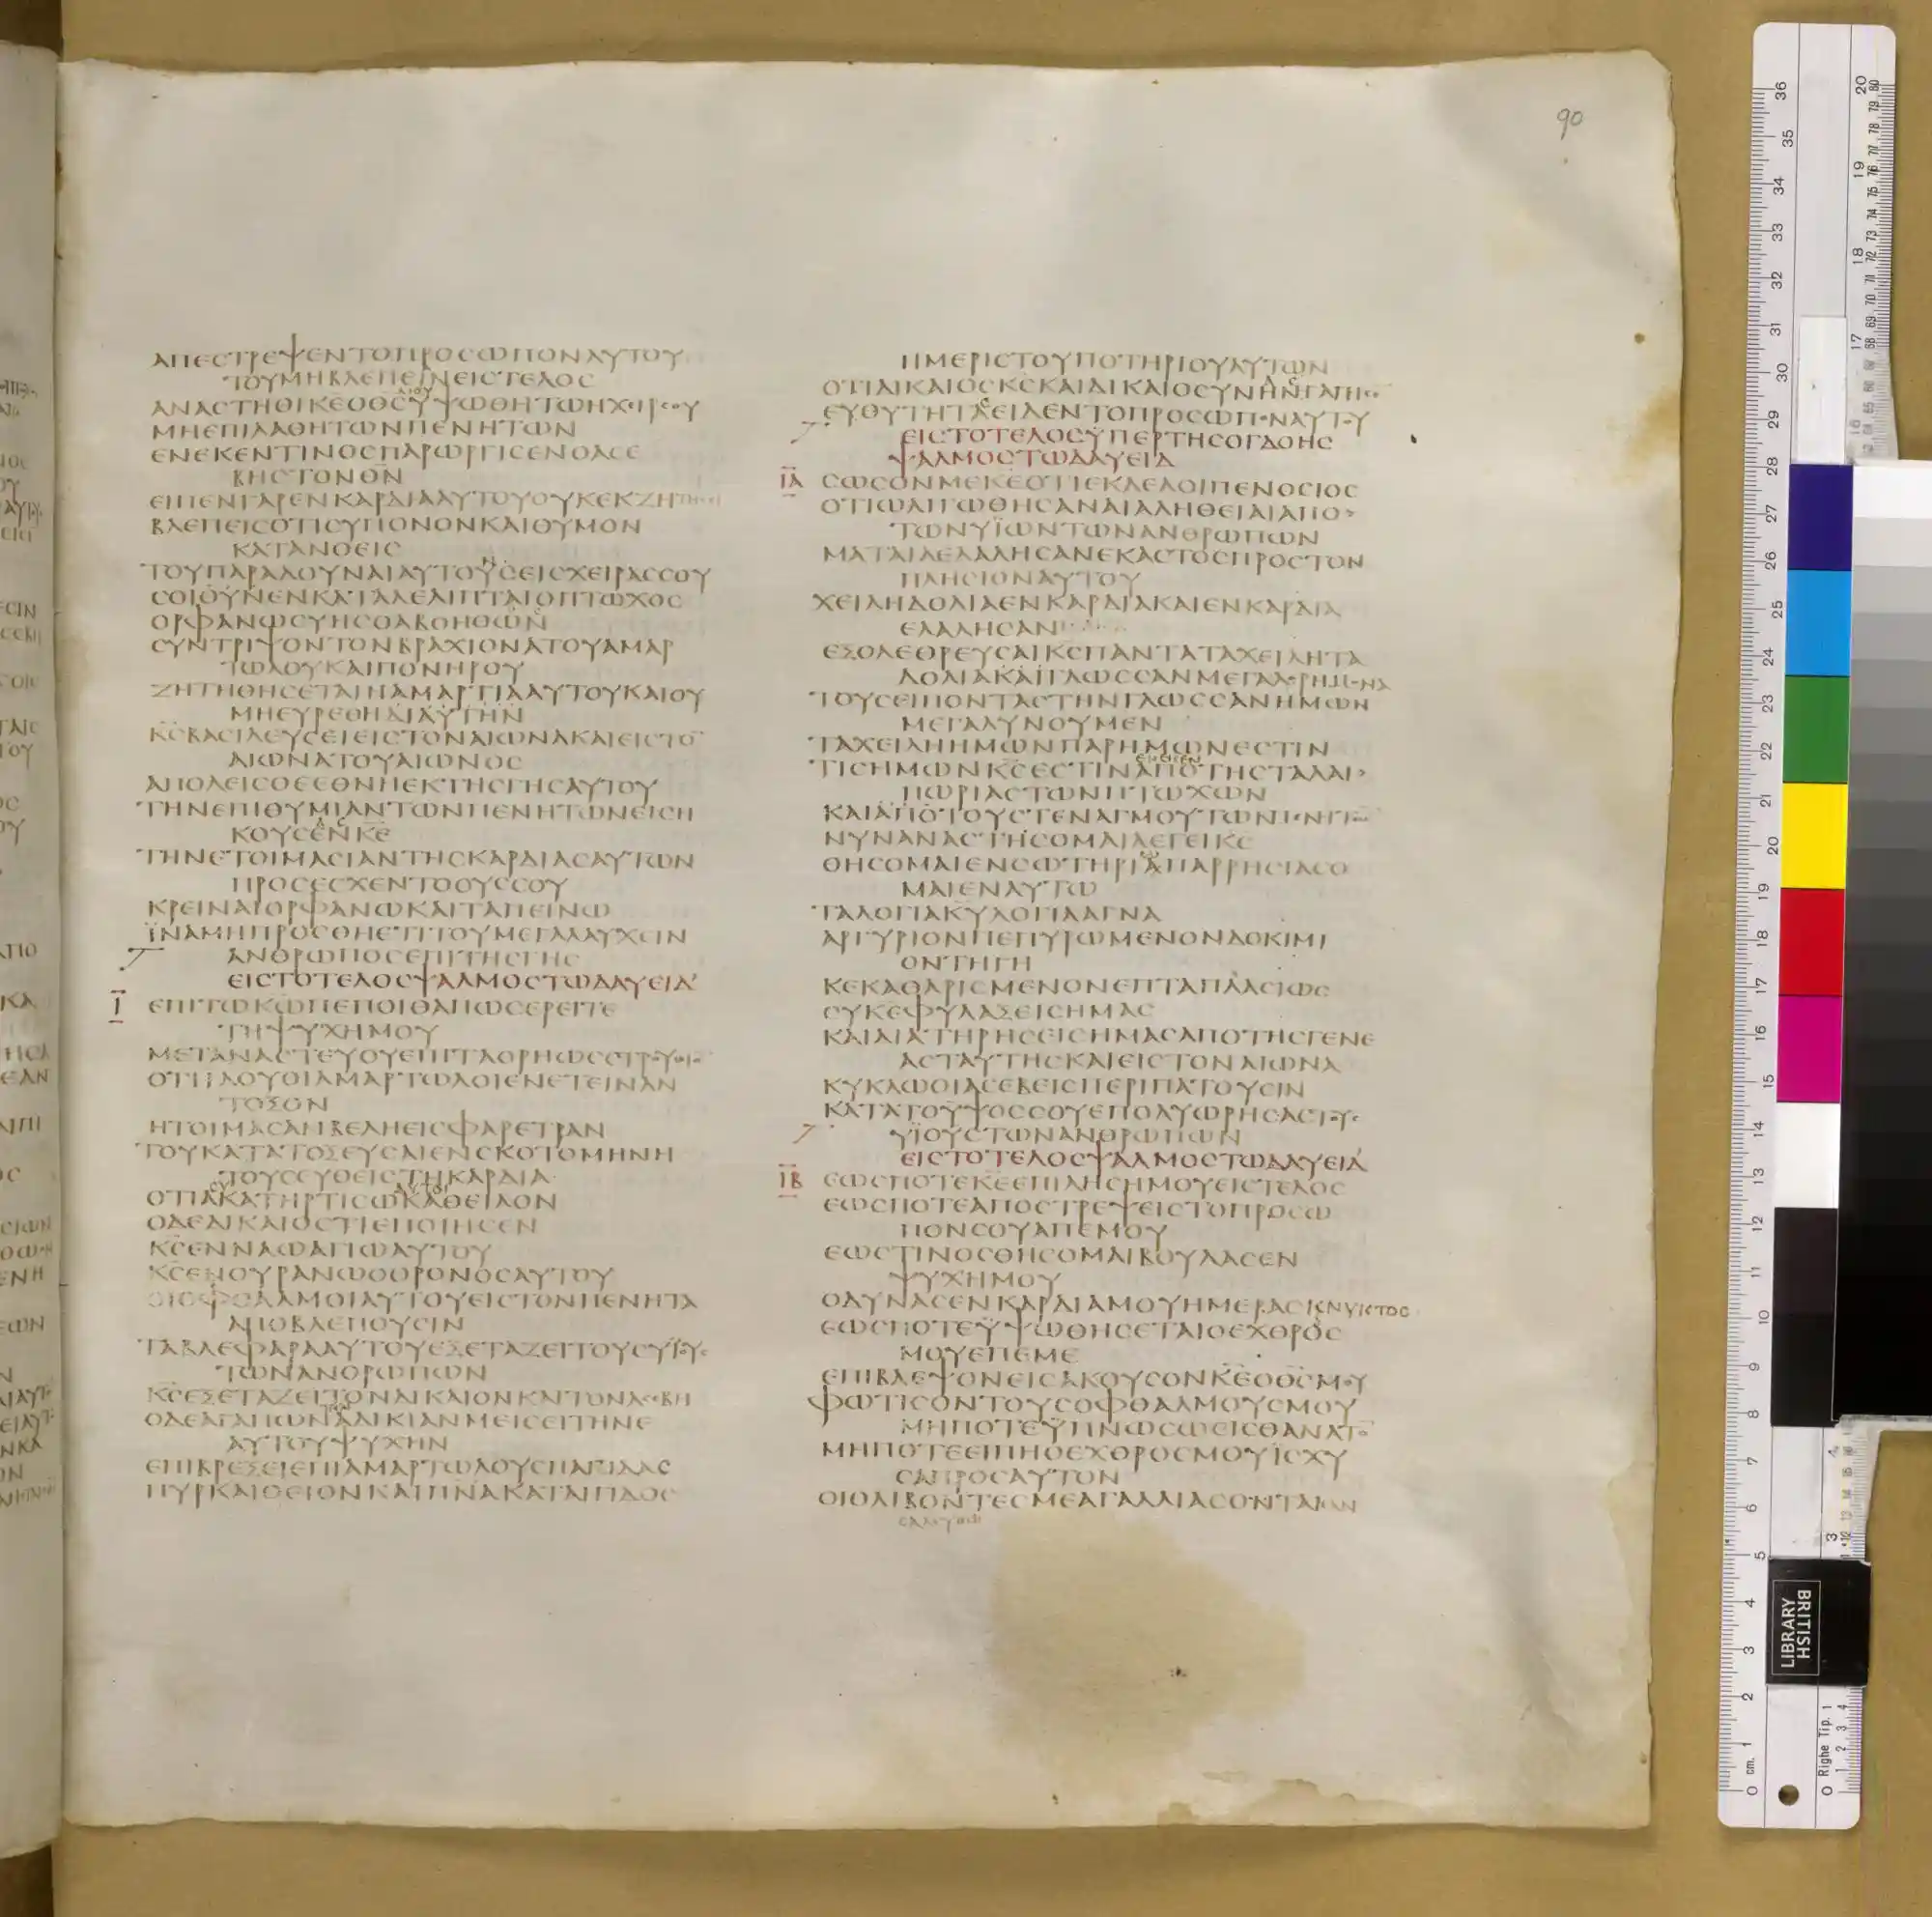 90
ΑΠΕϹΤΡΕΨΕΝΤΟΠΡΟϹΩΠΟΝΑΥΤΟΥ
ΤΟΥΜΗΒΛΕΠΕΙΝΕΙϹΤΕΛΟϹ
ΑΝΑϹΤΗΘΙΚΕΟΘϹΥΨΩΘΗΤΩΗΧΙΡϹΟΥ
ΜΗΕΠΙΛΑΘΗΤΩΝΠΕΝΗΤΩΝ
ΕΝΕΚΕΝΤΙΝΟϹΠΑΡΩΡΓΙϹΕΝΟΑϹΕ
ΒΗϹΤΟΝΘΝ
ΕΙΠΕΝΓΑΡΕΝΚΑΡΔΙΑΑΥΤΟΥΟΥΚΕΚΖΗΤΗϹΙ
ΒΛΕΠΕΙϹΟΤΙϹΥΠΟΝΟΝΚΑΙΘΥΜΟΝ
ΚΑΤΑΝΟΕΙϹ
ΤΟΥΠΑΡΑΔΟΥΝΑΙΑΥΤΟΥϹΕΙϹΧΕΙΡΑϹϹΟΥ
ϹΟΙΟΥΝΕΝΚΑΤΑΛΕΛΙΠΤΑΙΟΠΤΩΧΟϹ
ΟΡΦΑΝΩϹΥΗϹΘΑΒΟΗΘΩΝ
ϹΥΝΤΡΙΨΟΝΤΟΝΒΡΑΧΙΟΝΑΤΟΥΑΜΑΡ
ΤΩΛΟΥΚΑΙΠΟΝΗΡΟΥ
ΖΗΤΗΘΗϹΕΤΑΙΗΑΜΑΡΤΙΑΑΥΤΟΥΚΑΙΟΥ
ΜΗΕΥΡΕΘΗΔΙΑΥΤΗΝ
ΚϹΒΑϹΙΛΕΥϹΕΙΕΙϹΤΟΝΑΙΩΝΑΚΑΙΕΙϹΤΟ
ΑΙΩΝΑΤΟΥΑΙΩΝΟϹ
ΑΠΟΛΕΙϹΘΕΕΘΝΗΕΚΤΗϹΓΗϹΑΥΤΟΥ
ΤΗΝΕΠΙΘΥΜΙΑΝΤΩΝΠΕΝΗΤΩΝΕΙϹΗ
ΚΟΥϹΕΝΚΕ
ΤΗΝΕΤΟΙΜΑϹΙΑΝΤΗϹΚΑΡΔΙΑϹΑΥΤΩΝ
ΠΡΟϹΕϹΧΕΝΤΟΟΥϹϹΟΥ
ΚΡΕΙΝΑΙΟΡΦΑΝΩΚΑΙΤΑΠΕΙΝΩ
ΪΝΑΜΗΠΡΟϹΘΗΕΤΙΤΟΥΜΕΓΑΛΑΥΧΕΙΝ
ΑΝΘΡΩΠΟϹΕΠΙΤΗϹΓΗϹ
ΕΙϹΤΟΤΕΛΟϹΨΑΛΜΟϹΤΩΔΑΥΕΙΔ
Ι ΕΠΙΤΩΚΩΠΕΠΟΙΘΑΠΩϹΕΡΕΙΤΕ
ΤΗΨΥΧΗΜΟΥ
ΜΕΤΑΝΑϹΤΕΥΟΥΕΠΙΤΑΟΡΗΩϹϹΤΡΟΥΘΙΟ
ΟΤΙΪΔΟΥΟΙΑΜΑΡΤΩΛΟΙΕΝΕΤΕΙΝΑΝ
ΤΟΞΟΝ
ΗΤΟΙΜΑϹΑΝΒΕΛΗΕΙϹΦΑΡΕΤΡΑΝ
ΤΟΥΚΑΤΑΤΟΞΕΥϹΑΙΕΝϹΚΟΤΟΜΗΝΗ
ΤΟΥϹϹΥΘΕΙϹΤΗΚΑΡΔΙΑ
ΟΤΙΑΚΑΤΗΡΤΙϹΩΚΑΘΕΙΛΟΝ
ΟΔΕΔΙΚΑΙΟϹΤΙΕΠΟΙΗϹΕΝ
ΚϹΕΝΝΑΩΑΓΙΩΑΥΤΟΥ
ΚϹΕΝΟΥΡΑΝΩΟΘΡΟΝΟϹΑΥΤΟΥ
ΟΙΟΦΘΑΛΜΟΙΑΥΤΟΥΕΙϹΤΟΝΠΕΝΗΤΑ
ΑΠΟΒΛΕΠΟΥϹΙΝ
ΤΑΒΛΕΦΑΡΑΑΥΤΟΥΕΞΕΤΑΖΕΙΤΟΥϹΥΪΟΥϹ
ΤΩΝΑΝΘΡΩΠΩΝ
ΚϹΕΞΕΤΑΖΕΙΤΟΝΔΙΚΑΙΟΝΚΑΙΤΟΝΑϹΕΒΗ
ΟΔΕΑΓΑΠΩΝΑΔΙΚΙΑΝΜΕΙϹΕΙΤΗΝΕ
ΑΥΤΟΥΨΥΧΗΝ
ΕΠΙΒΡΕΞΕΙΕΠΙΑΜΑΡΤΩΛΟΥϹΠΑΓΙΔΑϹ
ΠΥΡΚΑΙΘΕΙΟΝΚΑΙΠΝΑΚΑΤΑΙΓΙΔΟϹ
ΗΜΕΡΙϹΤΟΥΠΟΤΗΡΙΟΥΑΥΤΩΝ
ΟΤΙΔΙΚΑΙΟϹΚϹΚΑΙΔΙΚΑΙΟϹΥΝΗΝΓΑΠΗϹΕ
ΕΥΘΥΤΗΤΑΕΙΔΕΝΤΟΠΡΟϹΩΠΟΝΑΥΤΟΥ
ΕΙϹΤΟΤΕΛΟϹΥΠΕΡΤΗϹΟΓΔΟΗϹ
ΨΑΛΜΟϹΤΩΔΑΥΕΙΔ
ΙΑ ϹΩϹΟΝΜΕΚΕΟΤΙΕΚΛΕΛΟΙΠΕΝΟϹΙΟϹ
ΟΤΙΩΛΙΓΩΘΗϹΑΝΑΙΑΛΗΘΕΙΑΙΑΠΟ
ΤΩΝΥΪΩΝΤΩΝΑΝΘΡΩΠΩΝ
ΜΑΤΑΙΑΕΛΑΛΗϹΑΝΕΚΑϹΤΟϹΠΡΟϹΤΟΝ
ΠΛΗϹΙΟΝΑΥΤΟΥ
ΧΕΙΛΗΔΟΛΙΑΕΝΚΑΡΔΙΑΚΑΙΕΝΚΑΡΔΙΑ
ΕΛΑΛΗϹΑΝ
ΕΞΟΛΕΘΡΕΥϹΑΙΚϹΠΑΝΤΑΤΑΧΕΙΛΗΤΑ
ΔΟΛΙΑΚΑΙΓΛΩϹϹΑΝΜΕΓΑΛΟΡΗΜΟΝΑ
ΤΟΥϹΕΙΠΟΝΤΑϹΤΗΝΓΛΩϹϹΑΝΗΜΩΝ
ΜΕΓΑΛΥΝΟΥΜΕΝ
ΤΑΧΕΙΛΗΗΜΩΝΠΑΡΗΜΩΝΕϹΤΙΝ
ΤΙϹΗΜΩΝΚϹΕϹΤΙΝΑΠΟΤΗϹΤΑΛΑΙ
ΠΩΡΙΑϹΤΩΝΠΤΩΧΩΝ
ΚΑΙΑΠΟΤΟΥϹΤΕΝΑΓΜΟΥΤΩΝΠΕΝΗΤΩ
ΝΥΝΑΝΑϹΤΗϹΟΜΑΙΛΕΓΕΙΚϹ
ΘΗϹΟΜΑΙΕΝϹΩΤΗΡΙΑΠΑΡΡΗϹΙΑϹΟ
ΜΑΙΕΝΑΥΤΩ
ΤΑΛΟΓΙΑΚΥΛΟΓΙΑΑΓΝΑ
ΑΡΓΥΡΙΟΝΠΕΠΥΡΩΜΕΝΟΝΔΟΚΙΜΙ
ΟΝΤΗΓΗ
ΚΕΚΑΘΑΡΙϹΜΕΝΟΝΕΠΤΑΠΛΑϹΙΩϹ
ϹΥΚΕΦΥΛΑΞΕΙϹΗΜΑϹ
ΚΑΙΔΙΑΤΗΡΗϹΕΙϹΗΜΑϹΑΠΟΤΗϹΓΕΝΕ
ΑϹΤΑΥΤΗϹΚΑΙΕΙϹΤΟΝΑΙΩΝΑ
ΚΥΚΛΩΟΙΑϹΕΒΕΙϹΠΕΡΙΠΑΤΟΥϹΙΝ
ΚΑΤΑΤΟΥΨΟϹϹΟΥΕΠΟΛΥΩΡΗϹΑϹΤΟΥϹ
ΥΪΟΥϹΤΩΝΑΝΘΡΩΠΩΝ
ΕΙϹΤΟΤΕΛΟϹΨΑΛΜΟϹΤΩΔΑΥΕΙΔ
ΙΒ ΕΩϹΠΟΤΕΚΕΕΠΙΛΗϹΗΜΟΥΕΙϹΤΕΛΟϹ
ΕΩϹΠΟΤΕΑΠΟϹΤΡΕΨΕΙϹΤΟΠΡΟϹΩ
ΠΟΝϹΟΥΑΠΕΜΟΥ
ΕΩϹΤΙΝΟϹΘΗϹΟΜΑΙΒΟΥΛΑϹΕΝ
ΨΥΧΗΜΟΥ
ΟΔΥΝΑϹΕΝΚΑΡΔΙΑΜΟΥΗΜΕΡΑϹΚΝΥΚΤΟϹ
ΕΩϹΠΟΤΕΥΨΩΘΗϹΕΤΑΙΟΕΧΘΡΟϹ
ΜΟΥΕΠΕΜΕ
ΕΠΙΒΛΕΨΟΝΕΙϹΑΚΟΥϹΟΝΚΕΟΘϹΜΟΥ
ΦΩΤΙϹΟΝΤΟΥϹΟΦΘΑΛΜΟΥϹΜΟΥ
ΜΗΠΟΤΕΥΠΝΩϹΩΕΙϹΘΑΝΑΤΟ
ΜΗΠΟΤΕΕΙΠΗΟΕΧΘΡΟϹΜΟΥΪϹΧΥ
ϹΑΠΡΟϹΑΥΤΟΝ
ΟΙΘΛΙΒΟΝΤΕϹΜΕΑΓΑΛΛΙΑϹΟΝΤΑΙΕΑΝ
ϹΑΛΕΥΘΩ
BRITISH
LIBRARY
0 cm. 1 2 3 4 5 6 7 8 9 10 11 12 13 14 15 16 17 18 19 20 21 22 23 24 25 26 27 28 29 30 31 32 33 34 35 36
0 Righe Tip. 1